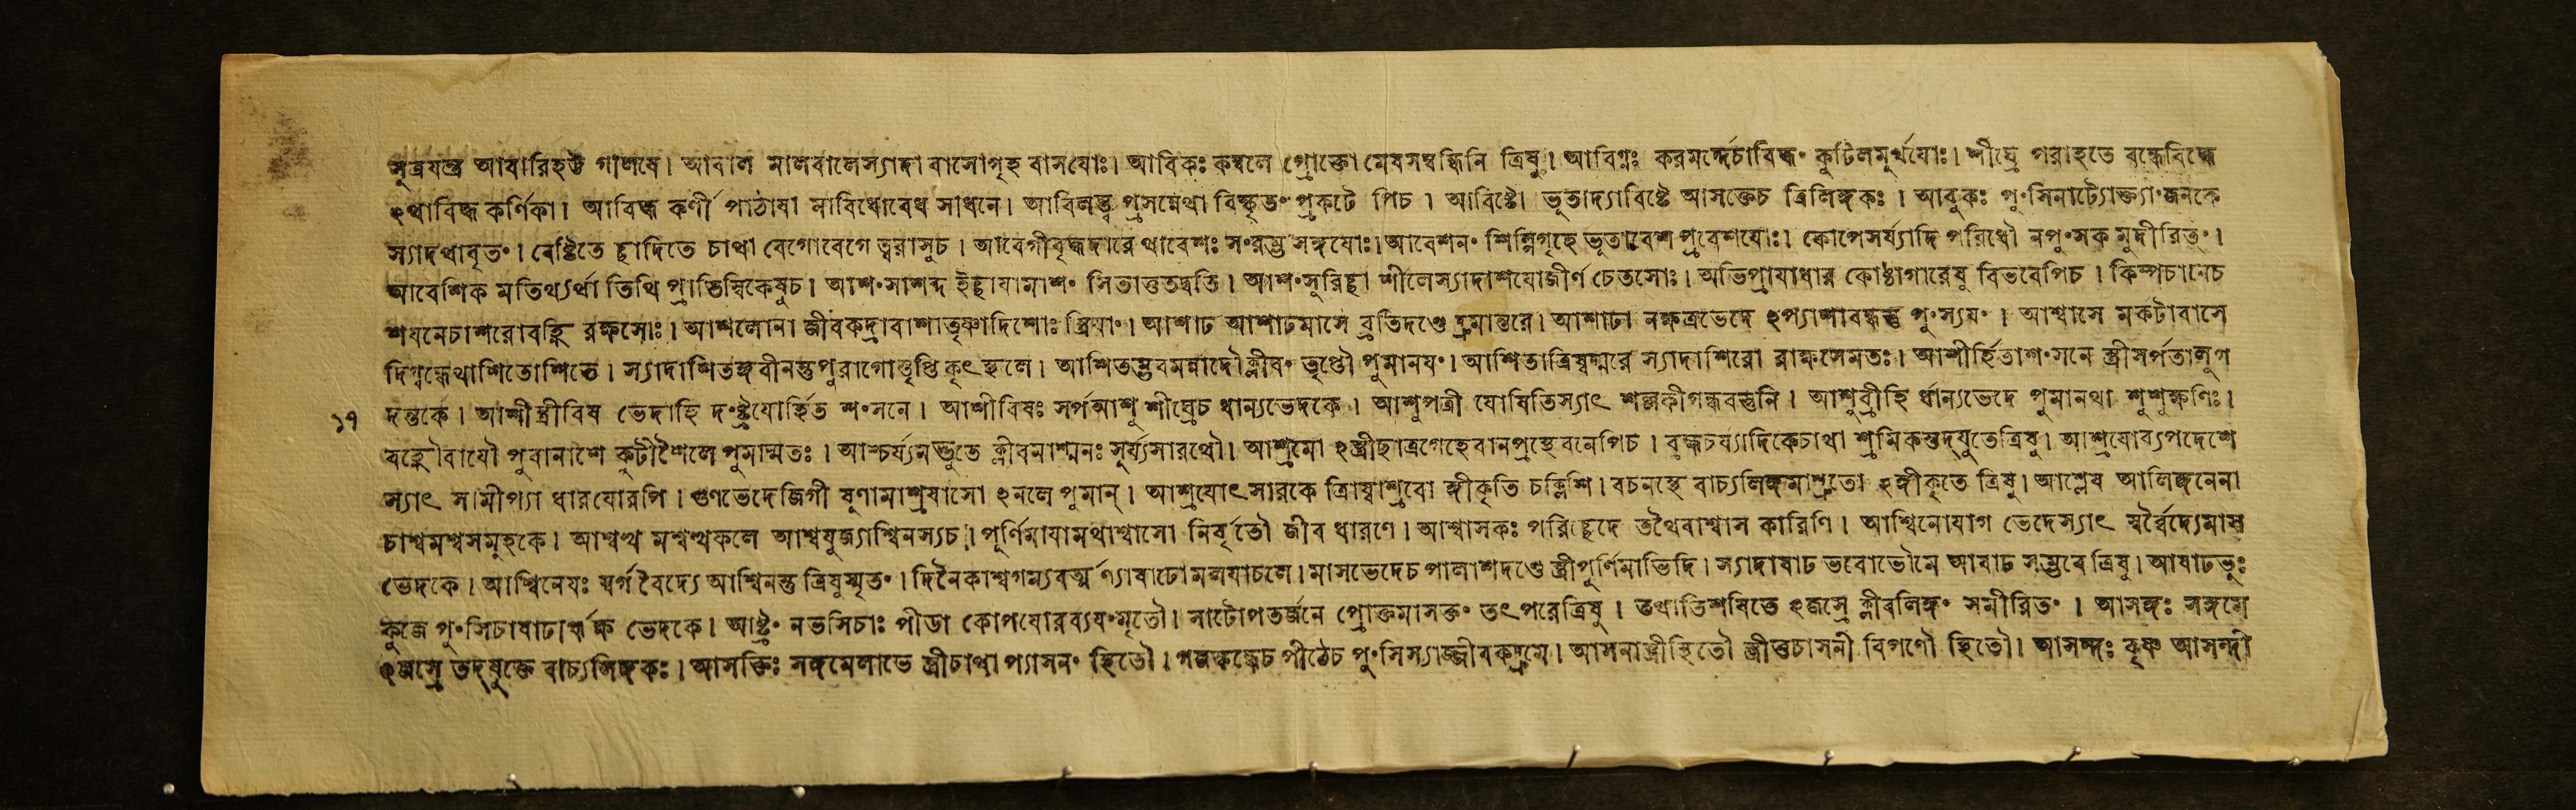 সূত্রযন্ত্র আবারিহট্ট গালষে। আবাল মালবালেস্যাদা বাসোগৃহ বাসযোঃ। আবিকঃ কম্বলে প্রোক্তো মেষসম্বন্ধিনি ত্রিষু। আবিগ্নঃ করমর্দ্দেচাবিদ্ধং কুটিলমূর্খযোঃ। শীঘ্রে পরাহতে বদ্ধেবিদ্ধে
ঽথাবিদ্ধ কর্ণিকা। আবিদ্ধ কর্ণী পাঠাযা মাবিধোবেধ সাধনে। আবিলন্ত্ব প্রসন্নেথা বিষ্কৃতং প্রকটে পিচ। আবিষ্টো ভূতাদ্যাবিষ্টে আসক্তেচ ত্রিলিঙ্গকঃ। আবুকঃ পুংসিনাট্যোক্ত্যাং জনকে
স্যাদথাবৃতং। বেষ্টিতে ছাদিতে চাথা বেগোবেগে ত্বরাসুচ। আবেগীবৃদ্ধদারে থাবেশঃ সংরম্ভ সঙ্গযোঃ। আবেশনং শিল্পিগৃহে ভূতাবেশ প্রবেশযোঃ। কোপেসর্য্যাদি পরিধৌ নপুংসক মুদীরিতং।
আবেশিক মতিথ্যর্থা তিথি প্রাপ্তিস্বিকেষুচ। আশংসাশব্দ ইচ্ছাযামাশং সিতাত্ততদ্বতি। আশংসুরিচ্ছা শীলেস্যাদাশযোজীর্ণ চেতসোঃ। অভিপ্রাযাধার কোষ্ঠাগারেষু বিভবেপিচ। কিম্পচানেচ
শযনেচাশরোবহ্নি রক্ষসোঃ। আশলোনা জীবকদ্রাবাশাতৃষ্ণাদিশোঃ স্ত্রিযাং। আশাঢ আশাঢমাসে ব্রতিদণ্ডে দ্রুমান্তরে। আশাঢা নক্ষত্রভেদে ঽপ্যাশাবন্ধস্তু পুংস্যযং। আশ্বাসে মর্কটাবাসে
দিগ্বন্ধেথাশিতোশিতে। স্যাদাশিতঙ্গবীনন্তুপুরাগোস্তৃপ্তি কৃৎস্থলে। আশিতম্ভবমন্নাদৌক্লীবং তৃপ্তৌ পুমানযং। আশিতাত্রিষ্বদ্মরে স্যাদাশিরো রাক্ষসেমতঃ। আশীর্হিতাশংসনে স্ত্রীসর্পতালুগ
১৭ দন্তকে। আশী স্ত্রীবিষ ভেদাহি দংষ্ট্রযোর্হিত শংসনে। আশীবিষঃ সর্পআশু শীঘ্রেচ ধান্যভেদকে। আশুপত্রী যোষিতিস্যাৎ শল্লকীগন্ধবস্তুনি। আশুব্রীহি র্ধান্যভেদে পুমানথা শুশুক্ষণিঃ।
বহ্নৌবাযৌ পুমানাশে কুটীশৈলে পুমান্মতঃ। আশ্চর্য্যমদ্ভুতে ক্লীবমাশ্মনঃ সূর্য্যসারথৌ। আশ্রমো ঽস্ত্রীছাত্রগেহেবানপ্রস্থেবনেপিচ। বৃহ্মচর্য্যাদিকেচাথা শ্রমিকস্তদ্যুতেত্রিষু। আশ্রযোব্যপদেশে
স্যাৎ সামীপ্যা ধারযোরপি। গুণভেদেজিগী ষুণামাশ্রযাসো ঽনলে পুমান্। আশ্রযোৎসারকে ত্রিষ্বাশ্রবো ঙ্গীকৃতি চক্লিশি। বচনস্থে বাচ্যলিঙ্গমাশ্রুতো ঽঙ্গীকৃতে ত্রিষু। আশ্লেষ আলিঙ্গনেনা
চাশ্বমশ্বসমূহকে। আশ্বত্থ মশ্বত্থফলে আশ্বযুজ্যাশ্বিনস্যচ। পূর্ণিমাযামথাশ্বাসো নির্বৃতৌ জীব ধারণে। আশ্বাসকঃ পরিচ্ছেদে তথৈবাশ্বাস কারিণি। আশ্বিনোযাগ ভেদেস্যাৎ স্বর্ব্বৈদ্যেমাস
ভেদকে। আশ্বিনেযঃ স্বর্গ বৈদ্যে আশ্বিনন্তু ত্রিষুস্মৃতং। দিনৈকাশ্বগম্যবর্ত্ম ণ্যাষাঢোমলযাচলে। মাসভেদেচ পালাশদণ্ডে স্ত্রীপূর্ণিমাভিদি। স্যাদাষাঢ ভবোভৌমে আষাঢ সম্ভবে ত্রিষু। আষাঢভূঃ
কুজে পুংসিচাষাঢার্দ্ধ ক ভেদকে। আষ্ট্রং নভসিচাঃ পীডা কোপযোরব্যযংমৃতৌ। সাটোপতর্জনে প্রোক্তমাসক্তং তৎপরেত্রিষু। তথাতিশযিতে ঽজস্রে ক্লীবলিঙ্গং সমীরিতং। আসঙ্গঃ সঙ্গমে
ঽজস্রে তদ্যুক্তে বাচ্যলিঙ্গকঃ। আসক্তিঃ সঙ্গমেলাভে স্ত্রীচাথা প্যাসনং স্থিতৌ। গজস্কন্ধেচ পীঠেচ পুংসিস্যাজ্জীবকদ্রুমে। আসনাস্ত্রীস্থিতৌ স্ত্রীত্তচাসনী বিপণৌ স্থিতৌ। আসন্দঃ কৃষ্ণ আসন্দী